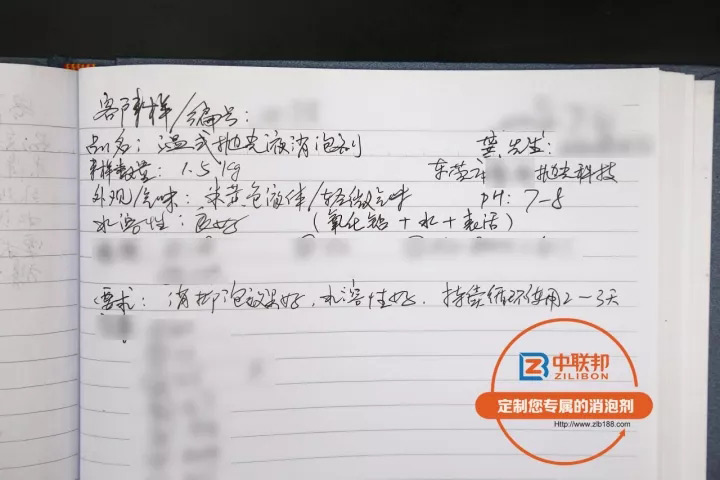 客户来样/编号：
品名：湿式抛光液消泡剂 龚先生：
来样数量：1.5kg 东莞市 抛光科技
外观/气味：米黄色液体/轻微气味 pH：7-8
水溶性：良好 （氧化铝+水+表活）
要求：消抑泡效果好，水溶性好．持续循环使用2-3天
。
中联邦
ZILIBON
定制您专属的消泡剂
Http://www.zlb188.com